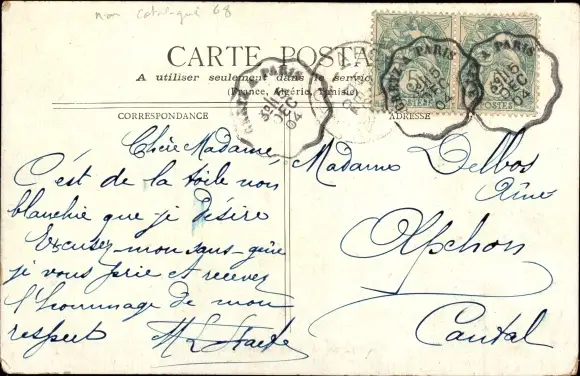 non catalogué 68
CARTE POSTA
A utiliser seulement dans le service
(France, Algérie, Tunisie)
CORRESPONDANCE
ADRESSE
A PARIS
DEC
04
A PARIS
5
DEC
04
POSTES
A PARIS
5
DEC
04
POSTES
Chère Madame,
C'est de la toile non
blanchie que je désire
Excusez-mon sans-gêne
je vous prie et recevez
l'hommage de mon
respect
Madame Delbos
Aîné
Apchon
Cantal